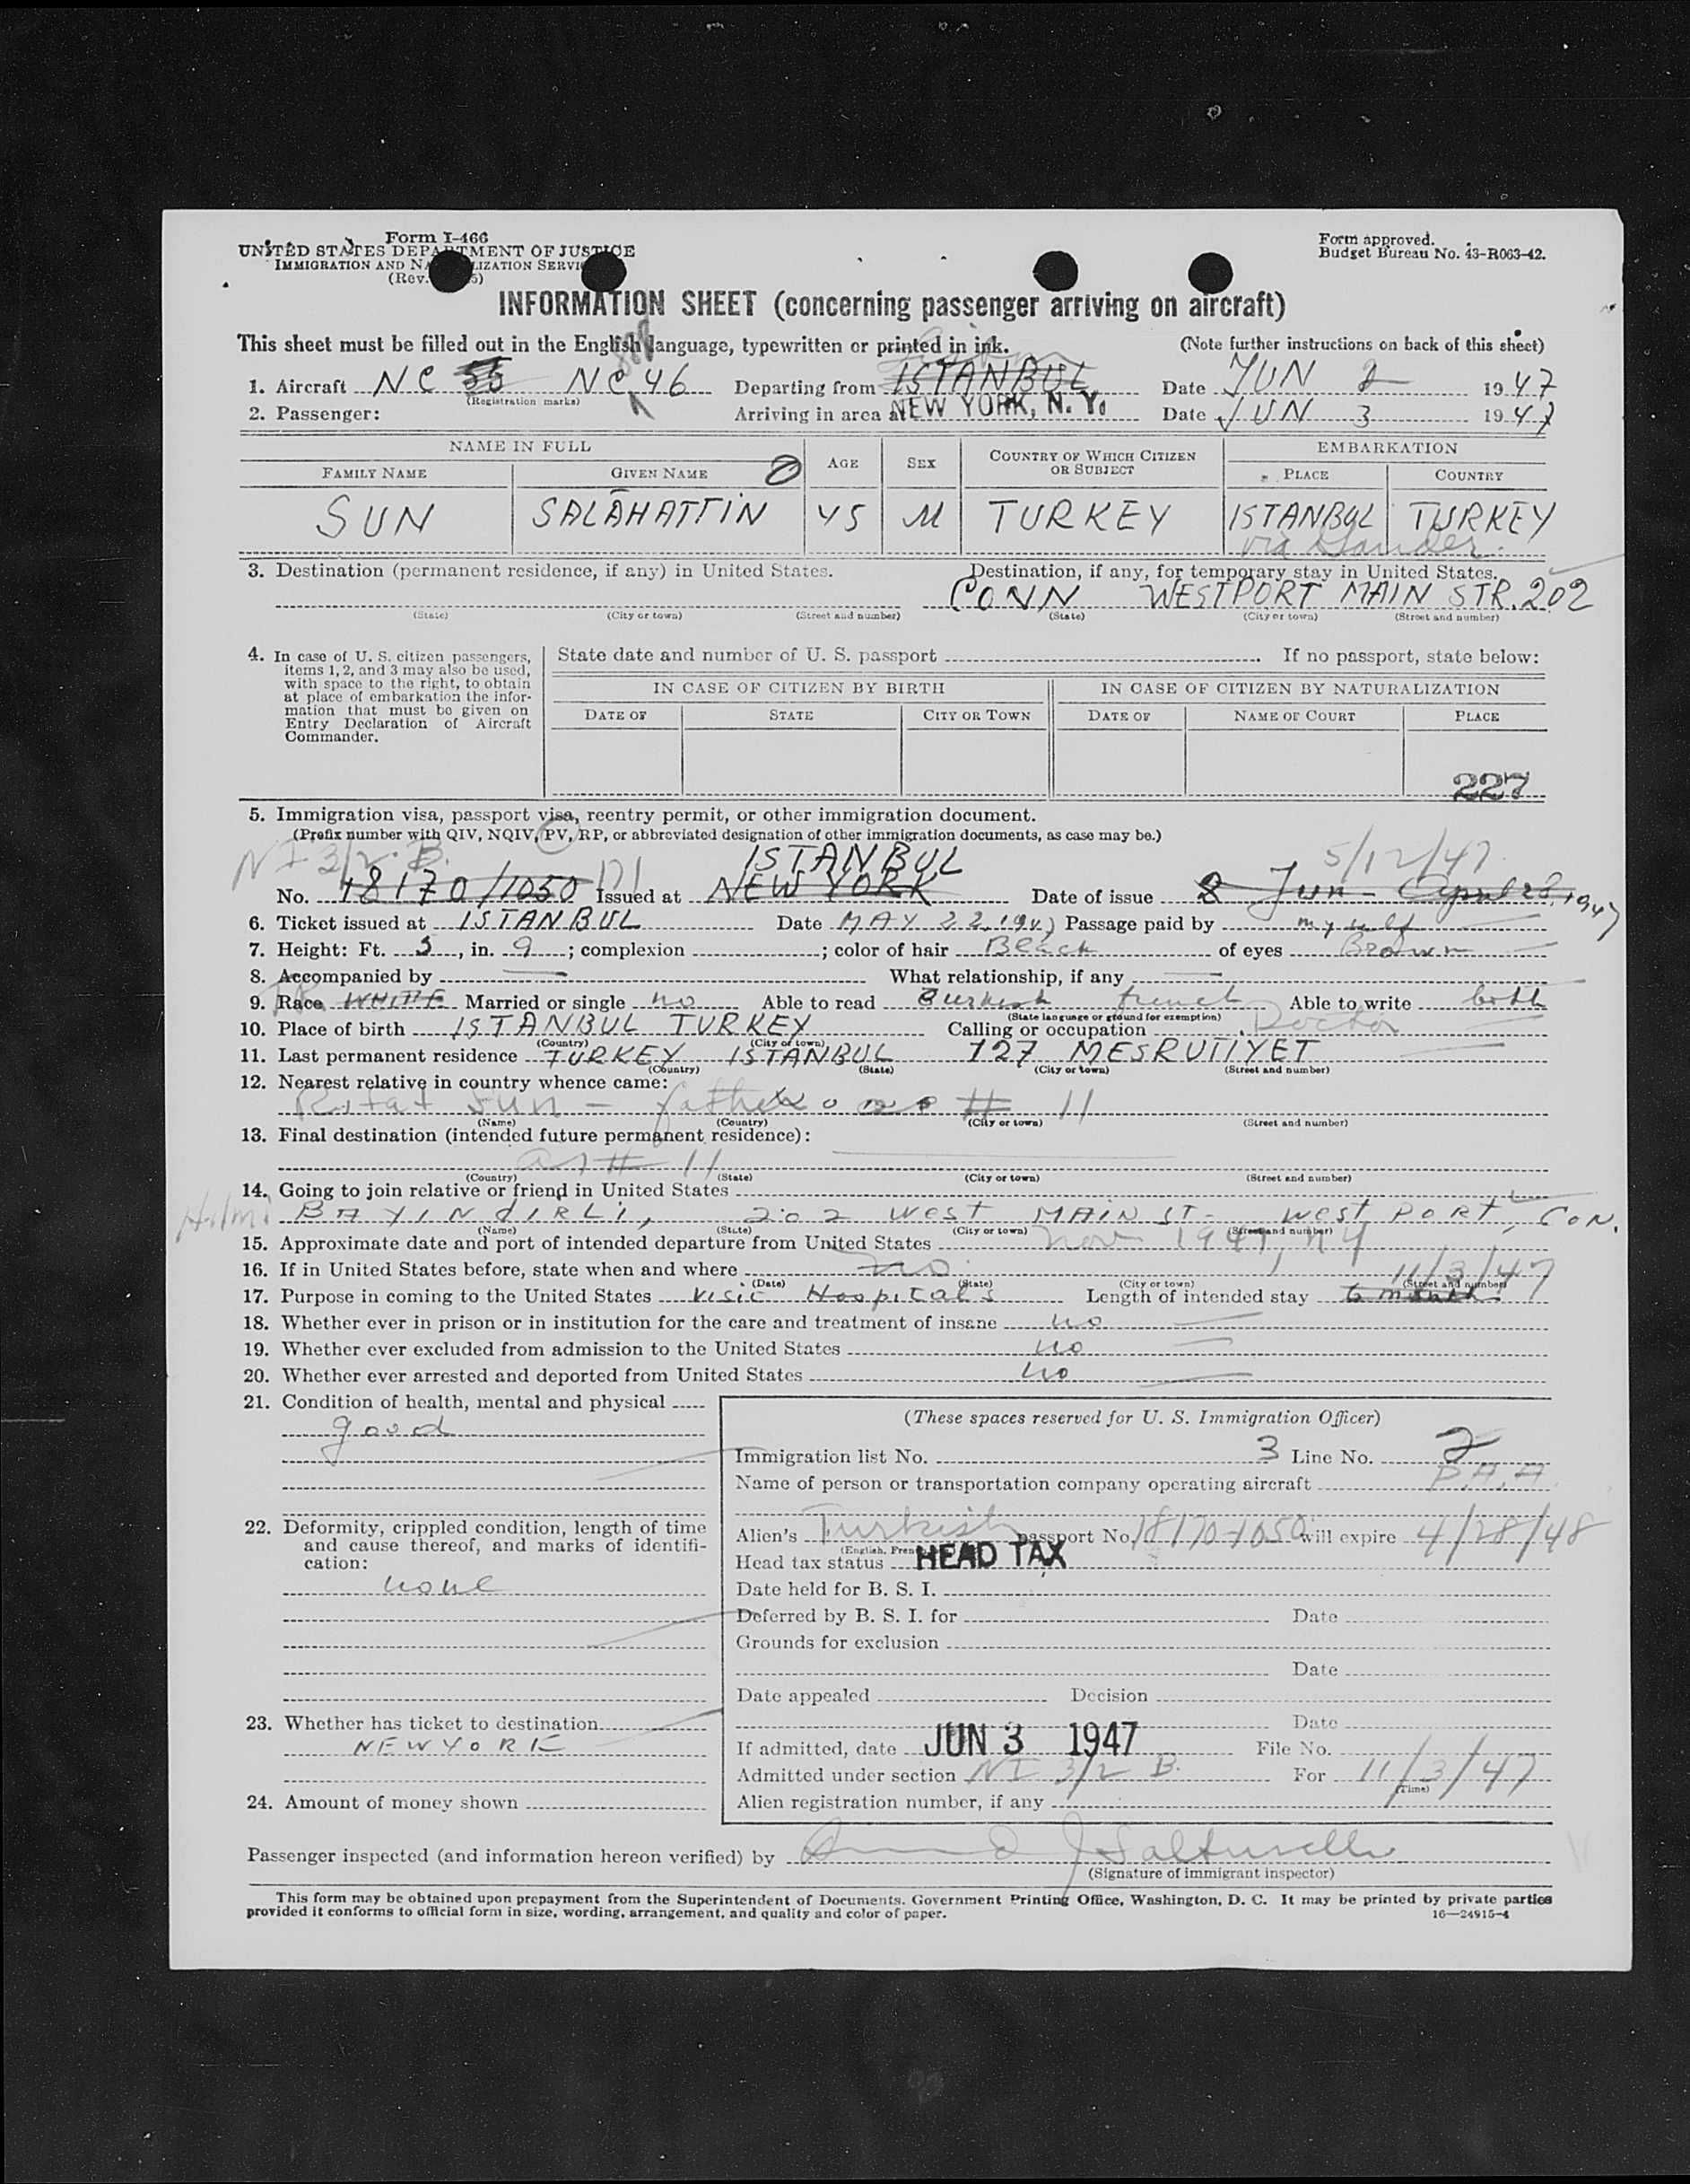 Form I-466
UNITED STATES DEPARTMENT OF JUSTICE
IMMIGRATION AND NATURALIZATION SERVICE
(Rev.
Form approved.
Budget Bureau No. 43-R063-42.
INFORMATION SHEET (concerning passenger arriving on aircraft)
This sheet must be filled out in the English language, typewritten or printed in ink. (Note further instructions on back of this sheet)
1. Aircraft NC 55 NC 46 Departing from ISTANBUL Date JUN 2 1947
(Registration marks)
2. Passenger: Arriving in area at NEW YORK, N. Y. Date JUN 3 1947
NAME IN FULL AGE SEX COUNTRY OF WHICH CITIZEN OR SUBJECT EMBARKATION
FAMILY NAME GIVEN NAME PLACE COUNTRY
SUN SALÂHATTİN 45 M TURKEY ISTANBUL TURKEY
via Gander
3. Destination (permanent residence, if any) in United States. Destination, if any, for temporary stay in United States.
CONN WESTPORT MAIN STR. 202
(State) (City or town) (Street and number) (State) (City or town) (Street and number)
4. In case of U. S. citizen passengers, items 1, 2, and 3 may also be used, with space to the right, to obtain at place of embarkation the information that must be given on Entry Declaration of Aircraft Commander.
State date and number of U. S. passport If no passport, state below:
IN CASE OF CITIZEN BY BIRTH IN CASE OF CITIZEN BY NATURALIZATION
DATE OF STATE CITY OR TOWN DATE OF NAME OF COURT PLACE
227
5. Immigration visa, passport visa, reentry permit, or other immigration document.
(Prefix number with QIV, NQIV, PV, RP, or abbreviated designation of other immigration documents, as case may be.)
NI 3/2 B. ISTANBUL 5/12/47
No. 18170/1050 171 Issued at NEW YORK Date of issue 2 Jun - April 28, 1947
6. Ticket issued at ISTANBUL Date MAY 22. 1947 Passage paid by my self
7. Height: Ft. 5, in. 9; complexion ; color of hair Black of eyes Brown
8. Accompanied by What relationship, if any
9. Race WHITE Married or single no Able to read Turkish french Able to write both
(State language or ground for exemption)
10. Place of birth ISTANBUL TURKEY Calling or occupation Doctor
(Country) (City or town)
11. Last permanent residence TURKEY ISTANBUL 127 MESRUTIYET
(Country) (State) (City or town) (Street and number)
12. Nearest relative in country whence came:
Rifat Sun - father # 11
(Name) (Country) (City or town) (Street and number)
13. Final destination (intended future permanent residence):
as # 11
(Country) (State) (City or town) (Street and number)
14. Going to join relative or friend in United States
Hilmi BAYINDIRLI, 202 West MAIN ST- West PORT, CON.
(Name) (State) (City or town) (Street and number)
15. Approximate date and port of intended departure from United States Nov 1947, NY
16. If in United States before, state when and where no
(Date) (State) (City or town) (Street and number)
11/3/47
17. Purpose in coming to the United States Visit Hospitals Length of intended stay 6 month
18. Whether ever in prison or in institution for the care and treatment of insane no
19. Whether ever excluded from admission to the United States no
20. Whether ever arrested and deported from United States no
21. Condition of health, mental and physical
good
22. Deformity, crippled condition, length of time and cause thereof, and marks of identification:
none
23. Whether has ticket to destination
NEW YORK
24. Amount of money shown
(These spaces reserved for U. S. Immigration Officer)
Immigration list No. 3 Line No. 2
Name of person or transportation company operating aircraft P.A.A.
Alien's Turkish passport No. 18170-1050 will expire 4/28/48
Head tax status HEAD TAX
Date held for B. S. I.
Deferred by B. S. I. for Date
Grounds for exclusion
Date
Date appealed Decision
Date
If admitted, date JUN 3 1947 File No.
Admitted under section NI 3/2 B. For 11/3/47
(Time)
Alien registration number, if any
Passenger inspected (and information hereon verified) by
(Signature of immigrant inspector)
This form may be obtained upon prepayment from the Superintendent of Documents, Government Printing Office, Washington, D. C. It may be printed by private parties
provided it conforms to official form in size, wording, arrangement, and quality and color of paper.
16—24915-4